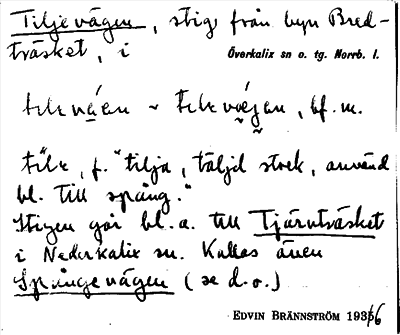 Tiljevägen, stig från byn Bred-
träsket, i Överkalix sn o. tg. Norrb. l.
bf. m.
f. "tilja, täljd stock, använd
bl. till spång."
Stigen går bl. a. till Tjärnträsket
i Nederkalix sn. Kallas även
Spångevägen (se d. o.)
EDVIN BRÄNNSTRÖM 1936